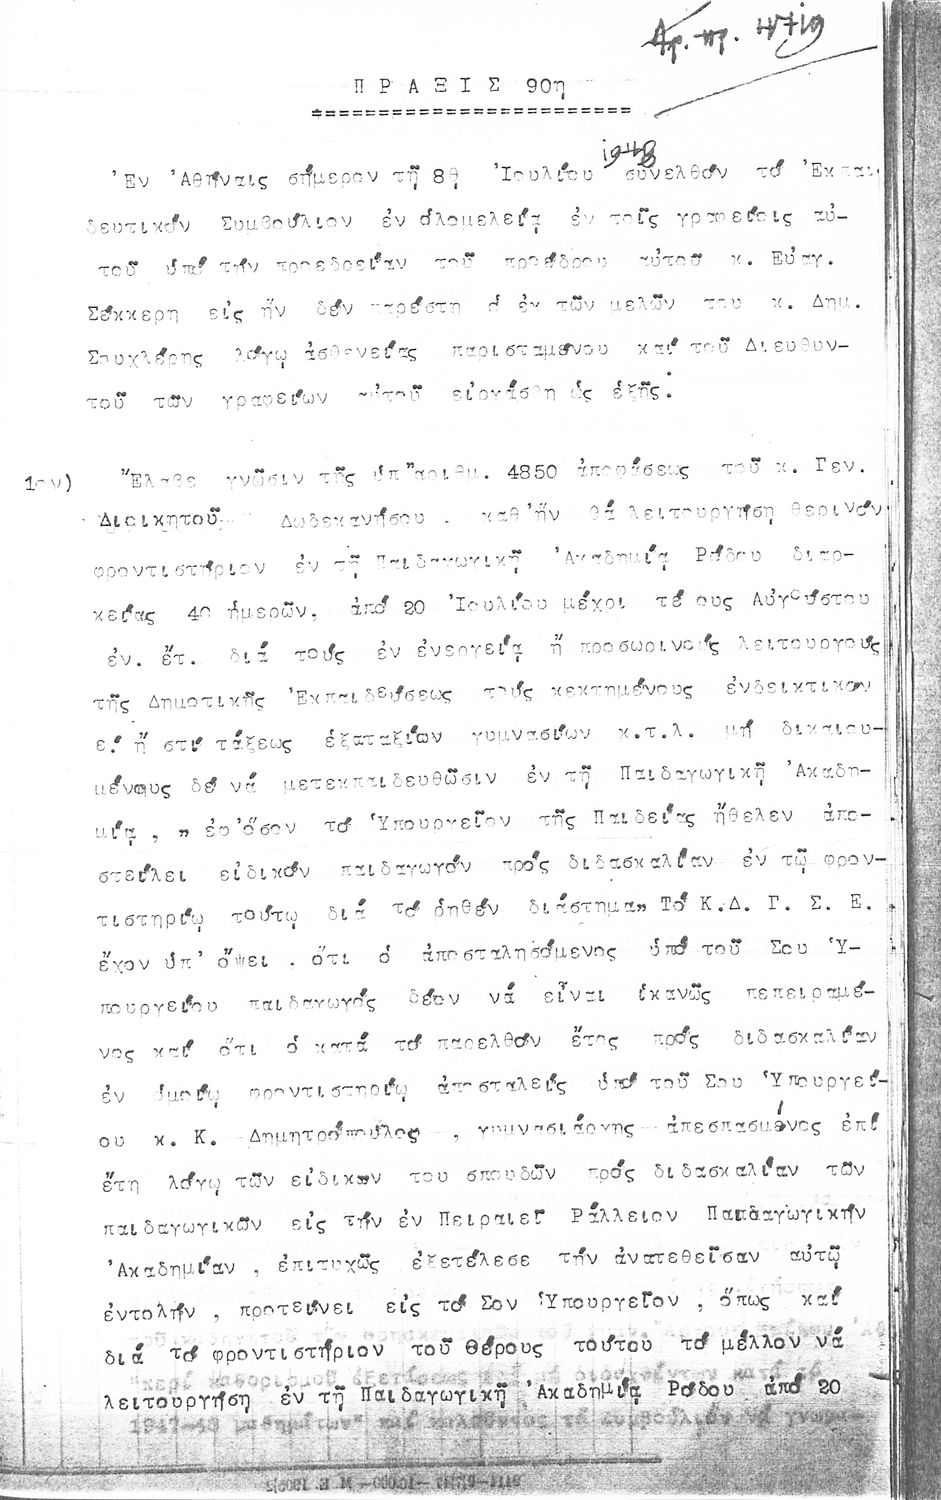 Αρ. πρ. 47/19
Π Ρ Α Ξ Ι Σ 90η
=======================
1948
Ἐν Ἀθήναις σήμερον τῇ 8ῃ Ἰουλίου συνελθόν τό Ἐκπαι-
δευτικόν Συμβούλιον ἐν ὁλομελείᾳ ἐν τοῖς γραφείοις αὐ-
τοῦ ὑπό τήν προεδρείαν τοῦ προέδρου αὐτοῦ κ. Εὐαγ.
Σέκκερη εἰς ἥν δέν παρέστη ὁ ἐκ τῶν μελῶν του κ. Δημ.
Σουχλέρης λόγῳ ἀσθενείας παρισταμένου καί τοῦ Διευθυν-
τοῦ τῶν γραφείων αὐτοῦ εἰργάσθη ὡς ἑξῆς:
1ον) Ἔλαβε γνῶσιν τῆς ὑπ' ἀριθμ. 4850 ἀποφάσεως τοῦ κ. Γεν.
Διοικητοῦ Δωδεκανήσου . καθ' ἥν θά λειτουργήσῃ θερινόν
φροντιστήριον ἐν τῇ Παιδαγωγικῇ Ἀκαδημίᾳ Ρόδου διαρ-
κείας 40 ἡμερῶν, ἀπό 20 Ἰουλίου μέχρι τέλους Αὐγούστου
ἐν. ἔτ. διά τούς ἐν ἐνεργείᾳ ἤ προσωρινούς λειτουργούς
τῆς Δημοτικῆς Ἐκπαιδεύσεως τούς κεκτημένους ἐνδεικτικόν
ε! ἤ στ! τάξεως ἑξαταξίων γυμνασίων κ.τ.λ. μή δικαιου-
μένους δέ νά μετεκπαιδευθῶσιν ἐν τῇ Παιδαγωγικῇ Ἀκαδη-
μίᾳ , " ἐφ' ὅσον τό Ὑπουργεῖον τῆς Παιδείας ἤθελεν ἀπο-
στείλει εἰδικόν παιδαγωγόν πρός διδασκαλίαν ἐν τῷ φρον-
τιστηρίῳ τούτῳ διά τό ῥηθέν διάστημα" Τό Κ.Δ. Γ. Σ. Ε.
ἔχον ὑπ' ὄψει . ὅτι ὁ ἀποσταλησόμενος ὑπό τοῦ Σου Ὑ-
πουργείου παιδαγωγός δέον νά εἶναι ἱκανῶς πεπειραμέ-
νος καί ὅτι ὁ κατά τό παρελθόν ἔτος πρός διδασκαλίαν
ἐν ὁμοίῳ φροντιστηρίῳ ἀποσταλείς ὑπό τοῦ Σου Ὑπουργεί-
ου κ. Κ. Δημητρόπουλος , γυμνασιάρχης ἀπεσπασμένος ἐπί
ἔτη λόγῳ τῶν εἰδικῶν του σπουδῶν πρός διδασκαλίαν τῶν
παιδαγωγικῶν εἰς τήν ἐν Πειραιεῖ Ράλλειον Παιδαγωγικήν
Ἀκαδημίαν , ἐπιτυχῶς ἐξετέλεσε τήν ἀνατεθεῖσαν αὐτῷ
ἐντολήν , προτείνει εἰς τό Σον Ὑπουργεῖον , ὅπως καί
διά τό φροντιστήριον τοῦ θέρους τούτου τό μέλλον νά
λειτουργήσῃ ἐν τῇ Παιδαγωγικῇ Ἀκαδημίᾳ Ρόδου ἀπό 20